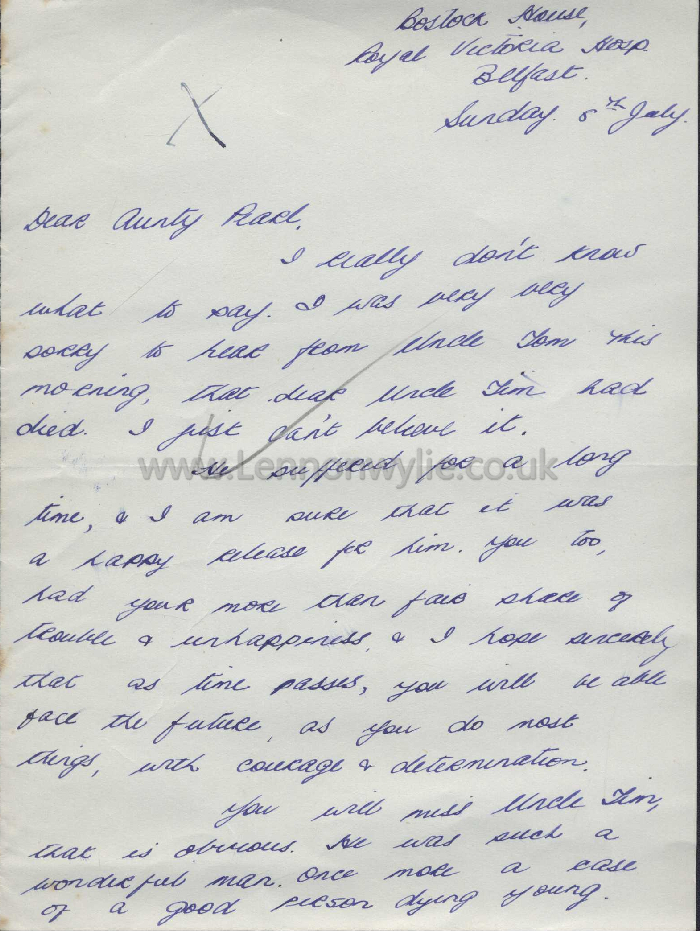 Bostock House,
Royal Victoria Hosp.
Belfast.
Sunday. 6th July.
X
Dear Aunty Pearl,
I really don't know
what to say. I was very very
sorry to hear from Uncle Tom this
morning, that dear Uncle Jim had
died. I just can't believe it.
He suffered for a long
www.Lennonwylie.co.uk
time, & I am sure that it was
a happy release for him. You too,
had your more than fair share of
trouble & unhappiness, & I hope sincerely
that as time passes, you will be able
face the future, as you do most
things, with courage & determination.
You will miss Uncle Jim,
that is obvious. He was such a
wonderful man. Once more a case
of a good person dying young.